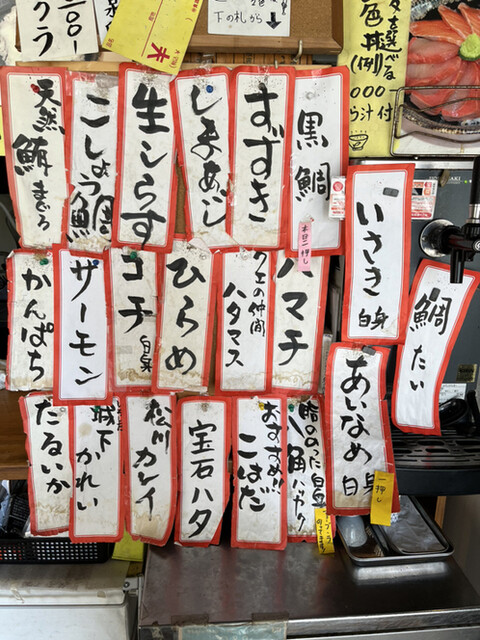 クラ
100-
大
下の札から
を選べる
色丼(例)
000
ら汁付
黒鯛
本日一押し
すずき
しまあじ
生しらす
こしょう鯛
天然
鮪
まぐろ
いさき
白身
鯛
たい
ハマチ
クエの仲間
ハタマス
ひらめ
コチ
白身
ザーモン
かんぱち
あいなめ
白身
一押し
脂ののった白身
八角
ハッカク
おすすめ!!
こはだ
宝石ハタ
松川
カレイ
城下
かれい
だるいか